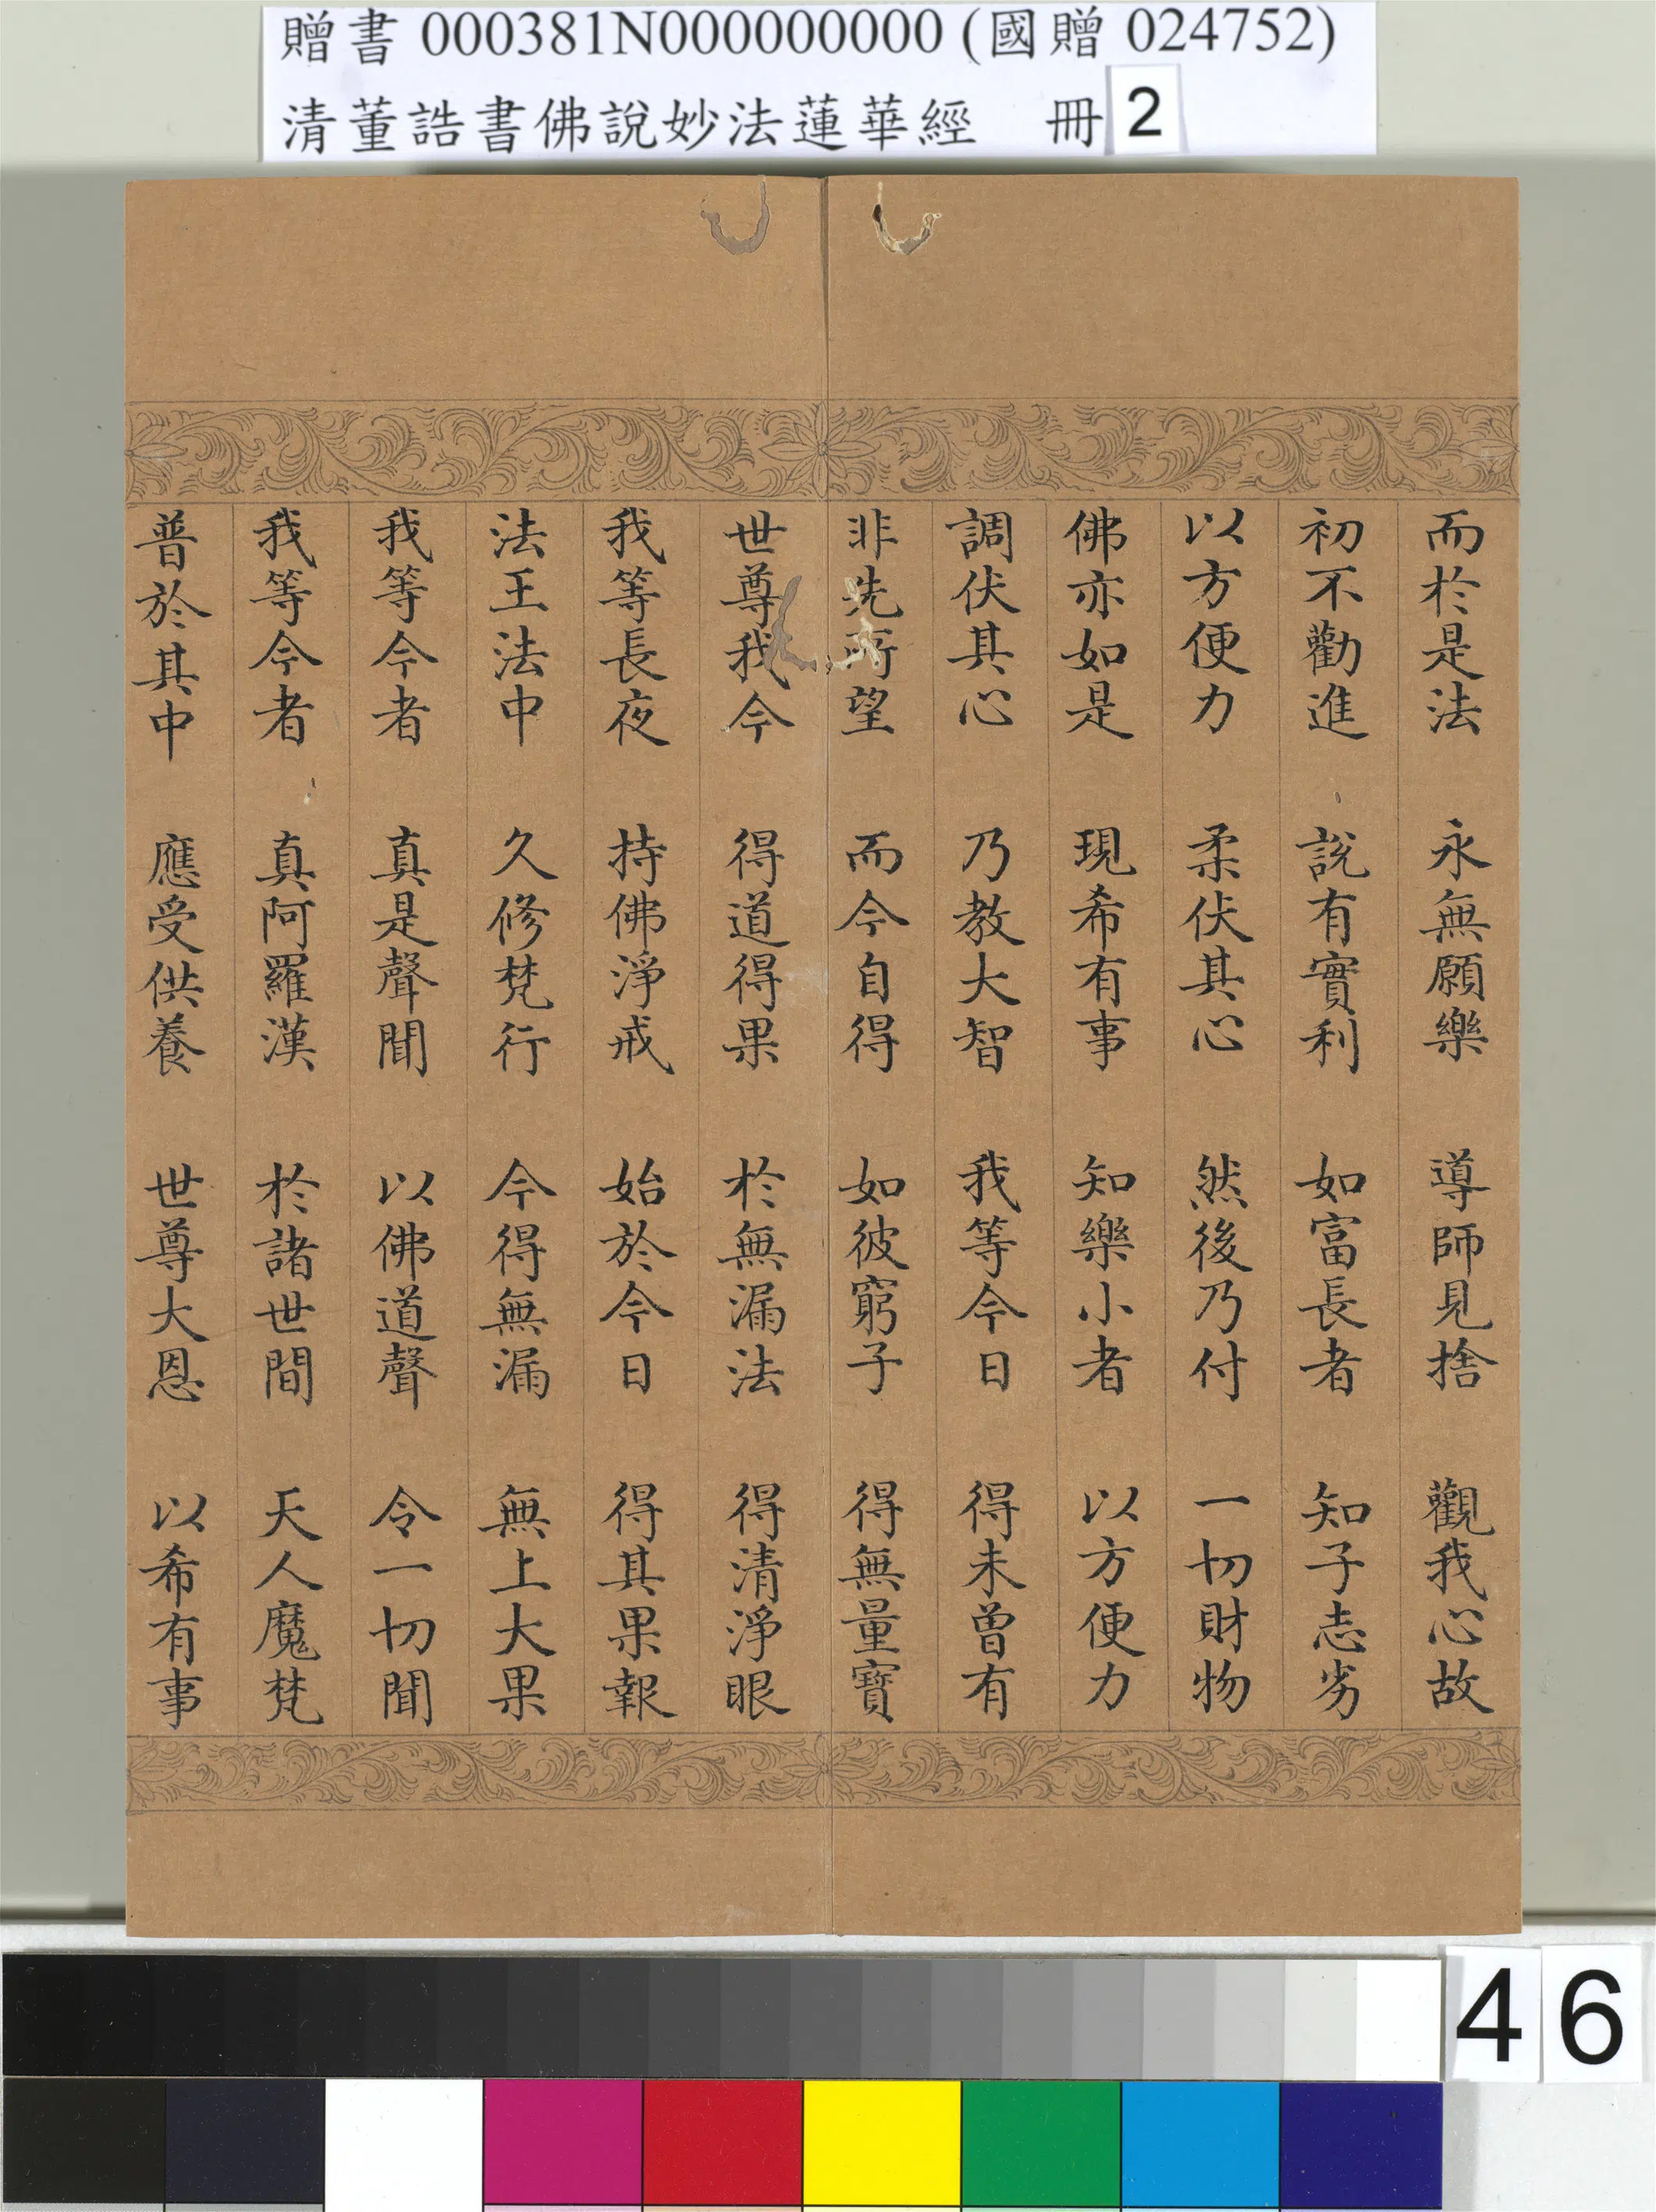 贈書 000381N000000000 (國贈 024752)
清董誥書佛說妙法蓮華經　冊 2
而於是法　永無願樂　導師見捨　觀我心故
初不勸進　說有實利　如富長者　知子志劣
以方便力　柔伏其心　然後乃付　一切財物
佛亦如是　現希有事　知樂小者　以方便力
調伏其心　乃教大智　我等今日　得未曾有
非先所望　而今自得　如彼窮子　得無量寶
世尊我今　得道得果　於無漏法　得清淨眼
我等長夜　持佛淨戒　始於今日　得其果報
法王法中　久修梵行　今得無漏　無上大果
我等今者　真是聲聞　以佛道聲　令一切聞
我等今者　真阿羅漢　於諸世間　天人魔梵
普於其中　應受供養　世尊大恩　以希有事
46